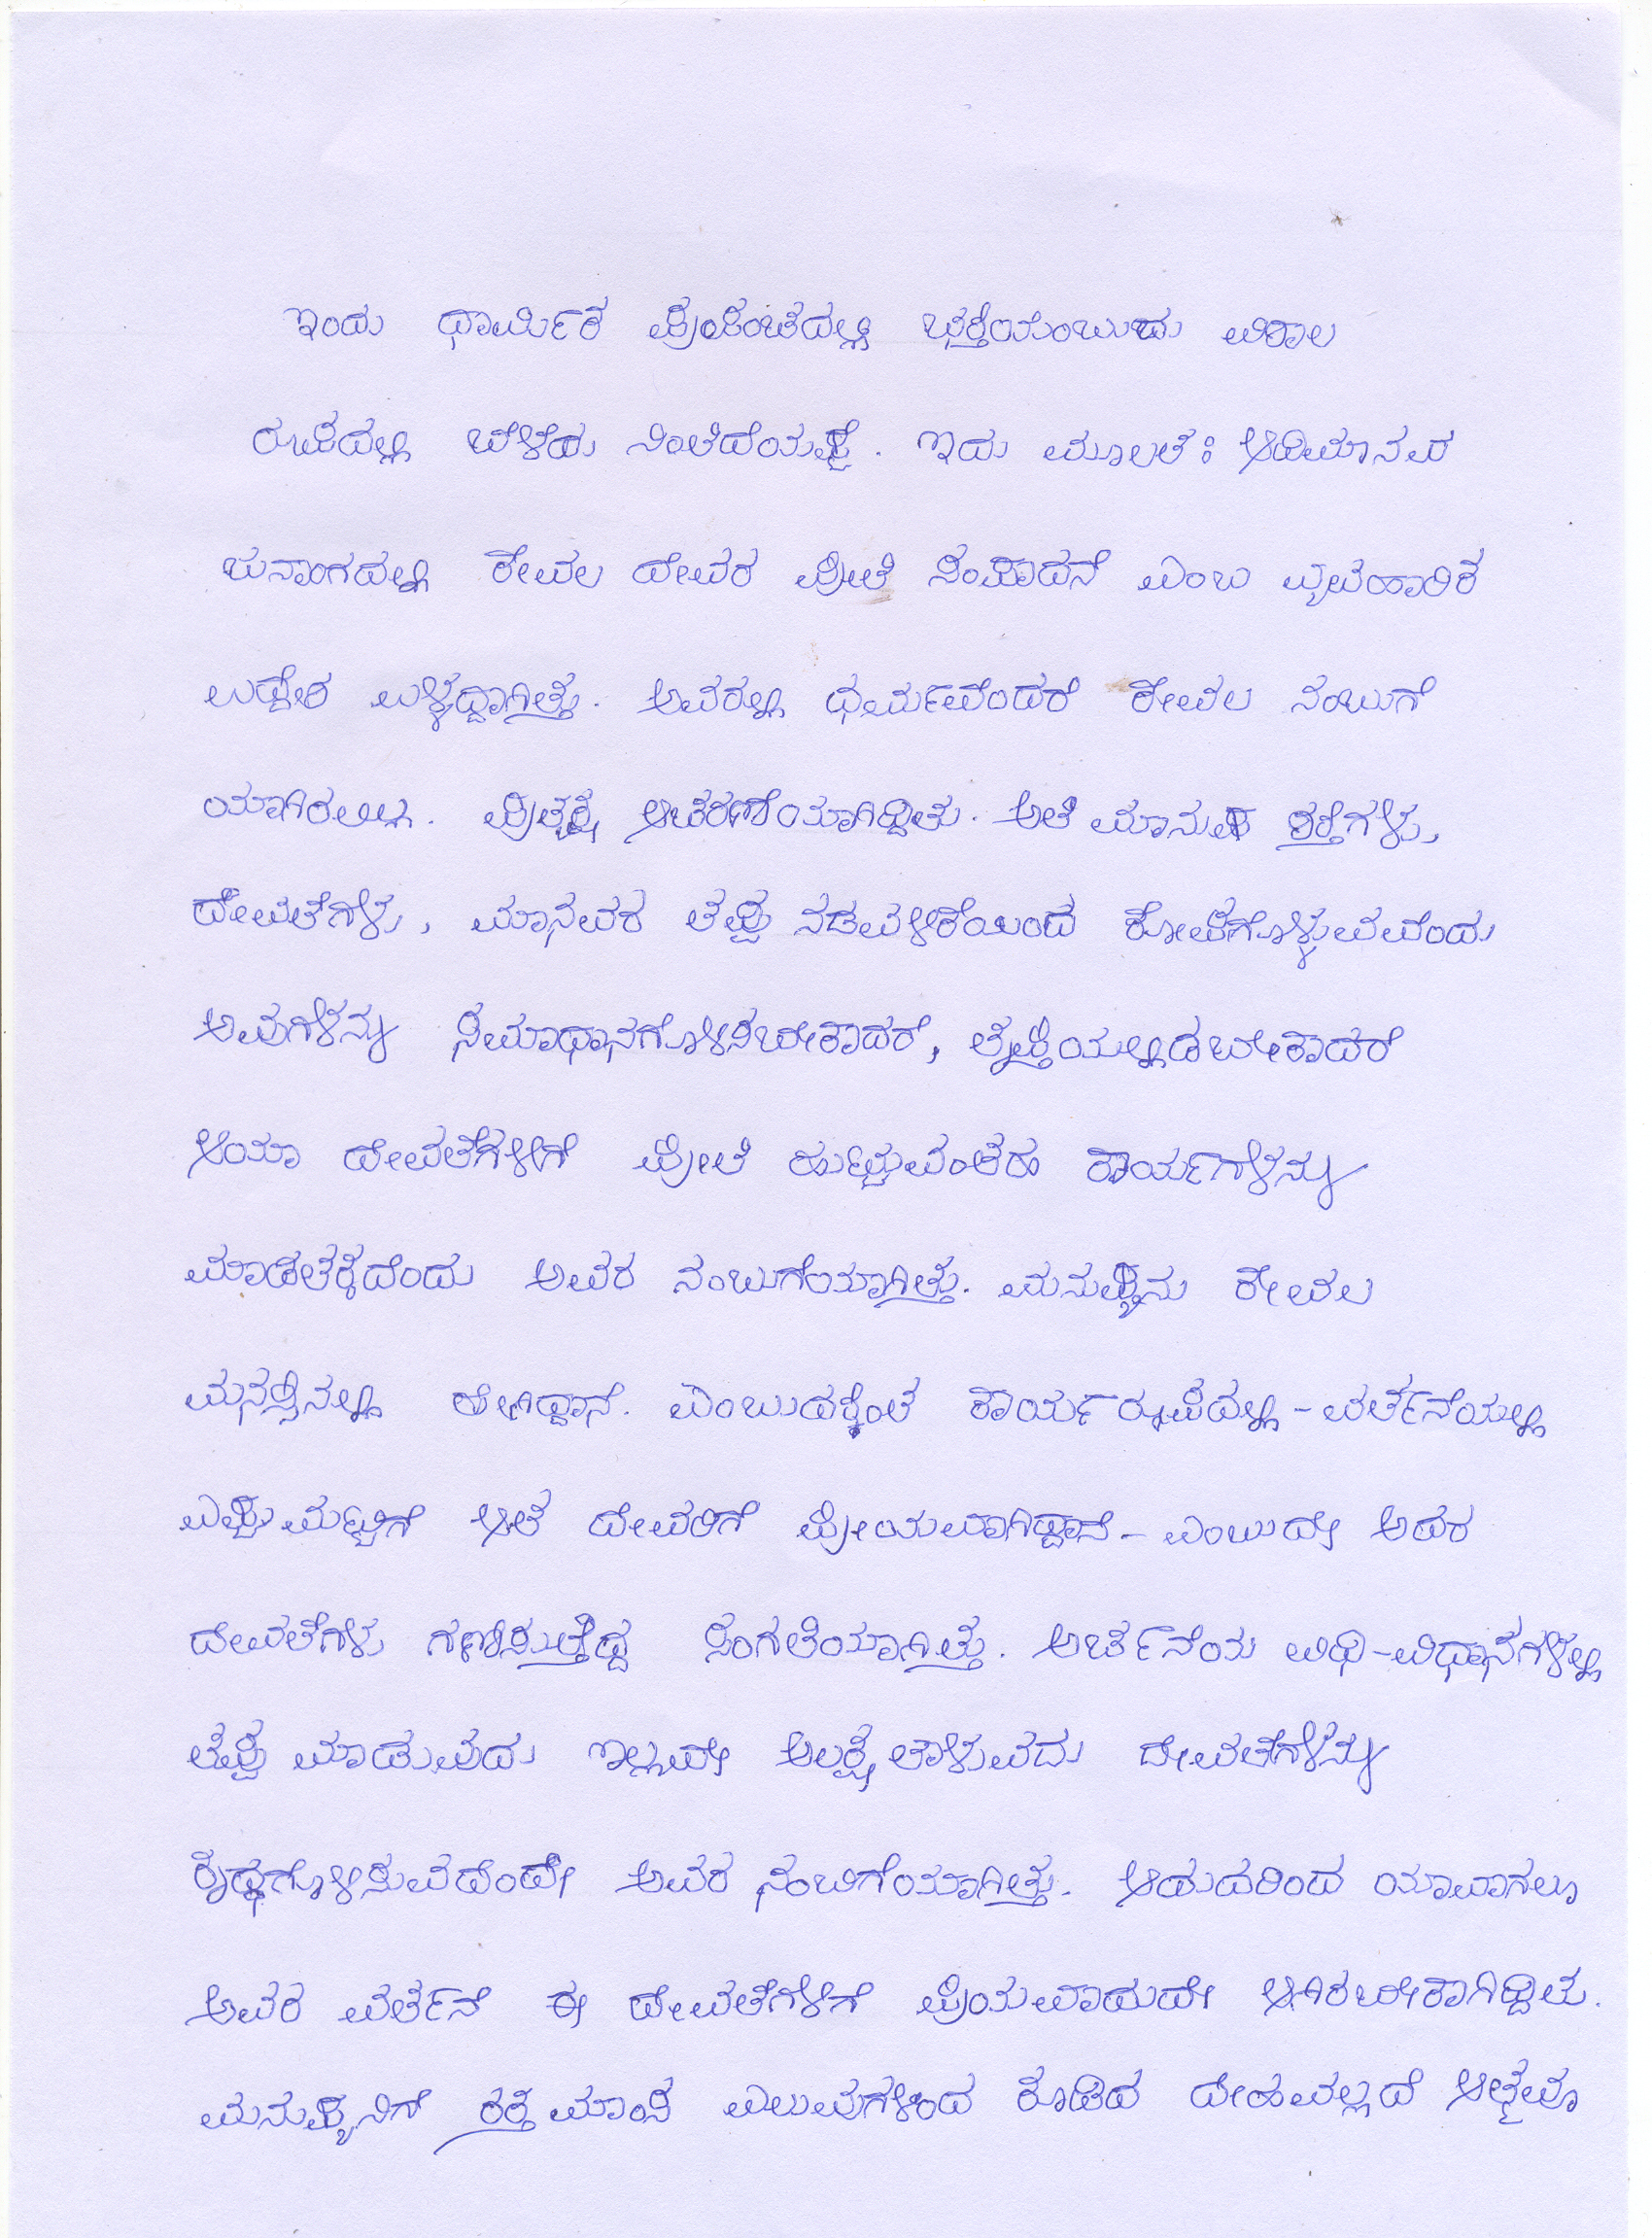 ಇಂದು ಧಾರ್ಮಿಕ ಪ್ರಪಂಚದಲ್ಲಿ ಭಕ್ತಿಯೆಂಬುದು ವಿಶಾಲ
ರೂಪದಲ್ಲಿ ಬೆಳೆದು ನಿಂತಿದೆಯಷ್ಟೆ. ಇದು ಮೂಲತಃ ಆದಿಮಾನವ
ಜನಾಂಗದಲ್ಲಿ ಕೇವಲ ದೇವರ ಪ್ರೀತಿ ಸಂಪಾದನೆ ಎಂಬ ವ್ಯವಹಾರಿಕ
ಉದ್ದೇಶ ಉಳ್ಳದ್ದಾಗಿತ್ತು. ಅವರಲ್ಲಿ ಧರ್ಮವೆಂದರೆ ಕೇವಲ ನಂಬುಗೆ
ಯಾಗಿರಲಿಲ್ಲ. ಪ್ರತ್ಯಕ್ಷ ಆಚರಣೆಯಾಗಿದ್ದಿತು. ಅತಿ ಮಾನುಷ ಶಕ್ತಿಗಳು,
ದೇವತೆಗಳು, ಮಾನವರ ತಪ್ಪು ನಡವಳಿಕೆಯಿಂದ ಕೋಪಗೊಳ್ಳುವವೆಂದು
ಅವುಗಳನ್ನು ಸಮಾಧಾನಗೊಳಿಸಬೇಕಾದರೆ, ತೃಪ್ತಿಯಲ್ಲಿಡಬೇಕಾದರೆ
ಆಯಾ ದೇವತೆಗಳಿಗೆ ಪ್ರೀತಿ ಹುಟ್ಟುವಂತಹ ಕಾರ್ಯಗಳನ್ನು
ಮಾಡತಕ್ಕದೆಂದು ಅವರ ನಂಬುಗೆಯಾಗಿತ್ತು. ಮನುಷ್ಯನು ಕೇವಲ
ಮನಸ್ಸಿನಲ್ಲಿ ಹೇಗಿದ್ದಾನೆ. ಎಂಬುದಕ್ಕಿಂತ ಕಾರ್ಯರೂಪದಲ್ಲಿ - ವರ್ತನೆಯಲ್ಲಿ
ಎಷ್ಟು ಮಟ್ಟಿಗೆ ಆತ ದೇವರಿಗೆ ಪ್ರೀಯವಾಗಿದ್ದಾನೆ - ಎಂಬುದೇ ಅವರ
ದೇವತೆಗಳು ಗಣಿಸುತ್ತಿದ್ದ ಸಂಗತಿಯಾಗಿತ್ತು. ಅರ್ಚನೆಯ ವಿಧಿ-ವಿಧಾನಗಳಲ್ಲಿ
ತಪ್ಪು ಮಾಡುವುದು ಇಲ್ಲವೇ ಅಲಕ್ಷ್ಯ ತಾಳುವದು ದೇವತೆಗಳನ್ನು
ಕೃದ್ಧಗೊಳಿಸುವದೆಂದೇ ಅವರ ನಂಬಿಗೆಯಾಗಿತ್ತು. ಆದುದರಿಂದ ಯಾವಾಗಲೂ
ಅವರ ವರ್ತನೆ ಈ ದೇವತೆಗಳಿಗೆ ಪ್ರಿಯವಾದುದೇ ಆಗಿರಬೇಕಾಗಿದ್ದಿತು.
ಮನುಷ್ಯನಿಗೆ ರಕ್ತ ಮಾಂಸ ಎಲುವುಗಳಿಂದ ಕೂಡಿದ ದೇಹವಲ್ಲದೆ ಆತ್ಮವೂ